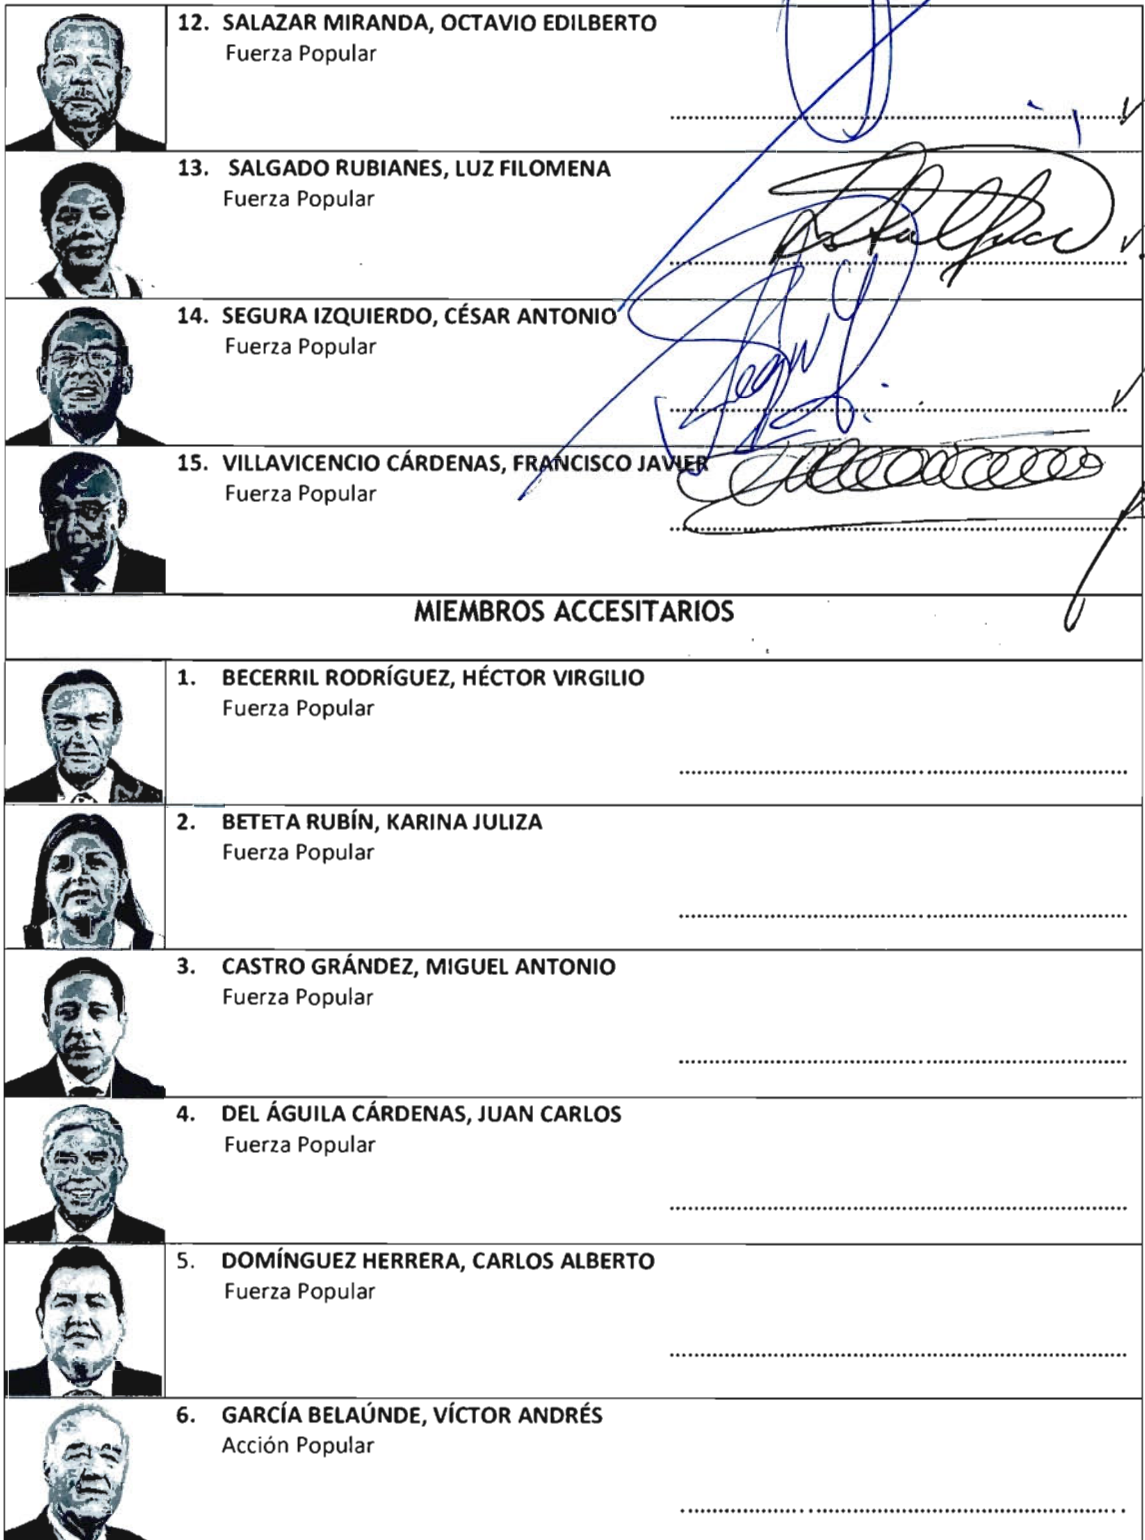 12. SALAZAR MIRANDA, OCTAVIO EDILBERTO
Fuerza Popular
13. SALGADO RUBIANES, LUZ FILOMENA
Fuerza Popular
14. SEGURA IZQUIERDO, CÉSAR ANTONIO
Fuerza Popular
15. VILLAVICENCIO CÁRDENAS, FRANCISCO JAVIER
Fuerza Popular
MIEMBROS ACCESITARIOS
1. BECERRIL RODRÍGUEZ, HÉCTOR VIRGILIO
Fuerza Popular
2. BETETA RUBÍN, KARINA JULIZA
Fuerza Popular
3. CASTRO GRÁNDEZ, MIGUEL ANTONIO
Fuerza Popular
4. DEL ÁGUILA CÁRDENAS, JUAN CARLOS
Fuerza Popular
5. DOMÍNGUEZ HERRERA, CARLOS ALBERTO
Fuerza Popular
6. GARCÍA BELAÚNDE, VÍCTOR ANDRÉS
Acción Popular